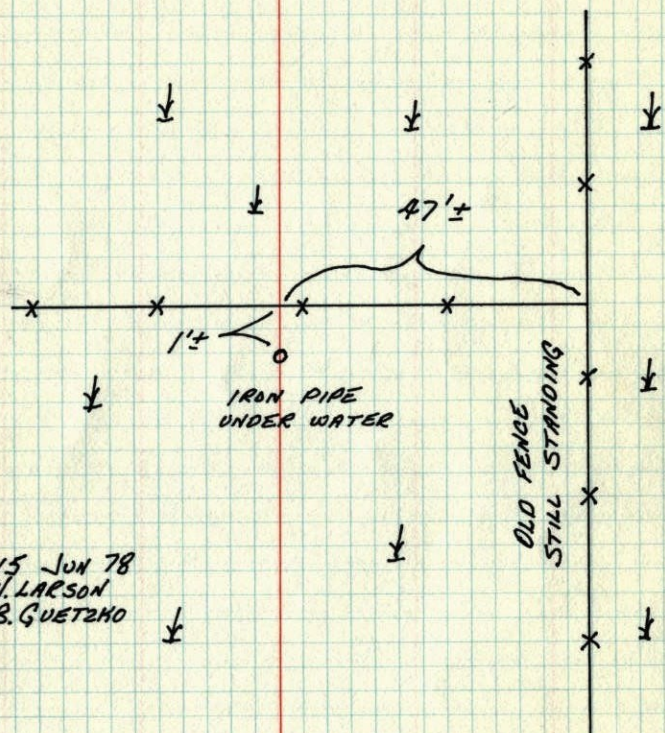 47'±
1'±
IRON PIPE
UNDER WATER
OLD FENCE
STILL STANDING
15 JUN 78
LARSON
B. GUETZKO